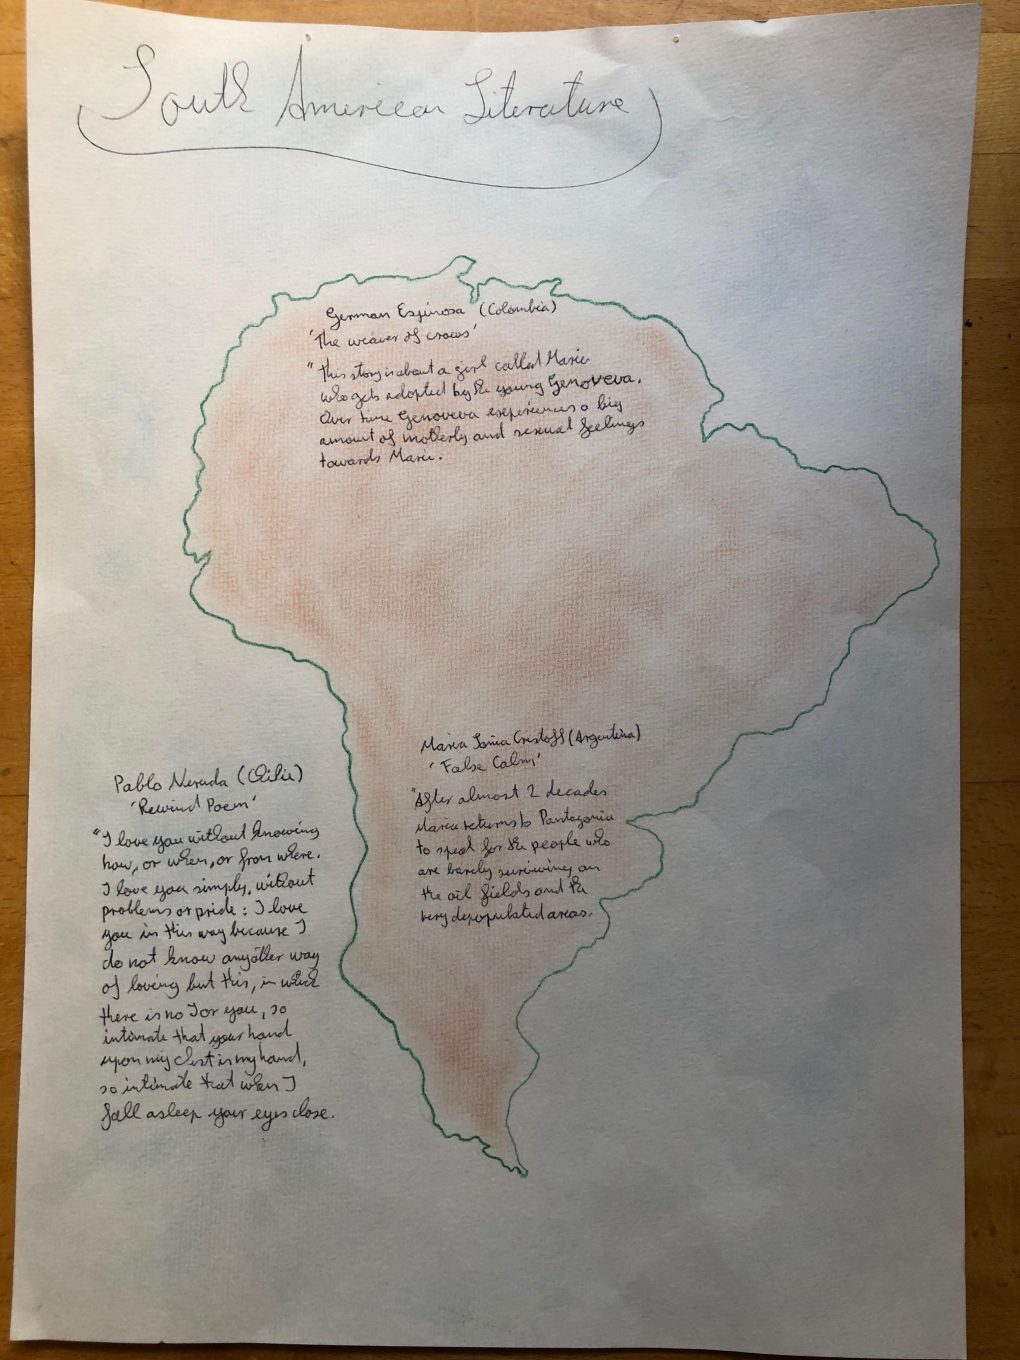 South American Literature
German Espinosa (Colombia)
'The weaver of crows'
"This story is about a girl called Marie
who gets adopted by the young Genoveva.
Over time Genoveva experiences a big
amount of motherly and sexual feelings
towards Marie.
Maria Sonia Cristoff (Argentina)
'False Calm'
"After almost 2 decades
Maria returns to Pantagonia
to speak for the people who
are barely surviwing on
the oil fields and the
very depopulated areas.
Pablo Neruda (Chile)
'Rewind Poem'
"I love you without knowing
how, or when, or from where.
I love you simply, without
problems or pride: I love
you in this way because I
do not know any other way
of loving but this, in which
there is no I or you, so
intimate that your hand
upon my chest is my hand,
so intimate that when I
fall asleep your eyes close.